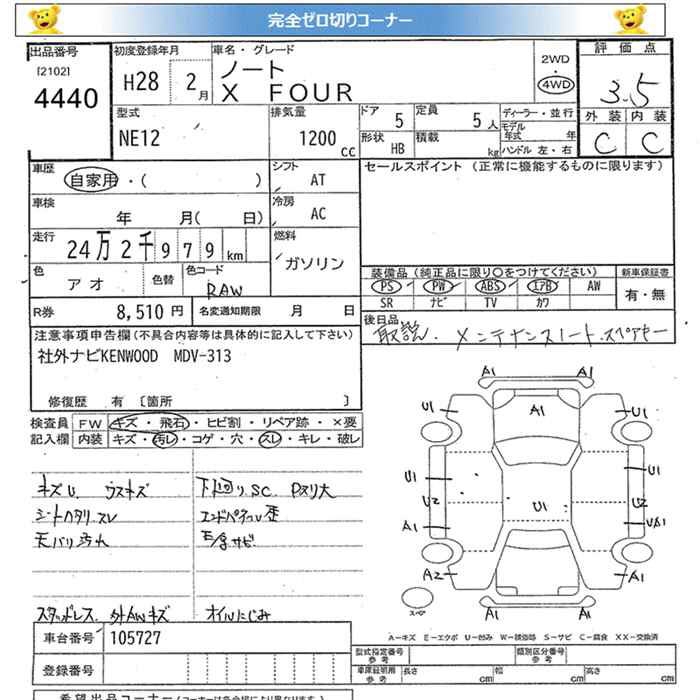 完全ゼロ切りコーナー
出品番号 初度登録年月 車名・グレード 評価点
[2102]
4440
H28 2月
ノート
X FOUR
2WD
4WD
3.5
型式 排気量 ドア 5 定員 5人 ディーラー・並行
NE12 1200cc
モデル年式 年
形状 HB 積載 kg ハンドル 左・右
外装 内装
C C
車歴 シフト セールスポイント (正常に機能するものに限ります)
自家用・( ) AT
車検 冷房
年 月( 日) AC
走行 燃料
24万2千979km ガソリン
色 色替 色コード
アオ RAW
装備品 (純正品に限り○をつけてください) 新車保証書
PS PW ABS エアB AW 有・無
SR ナビ TV カワ
R券 8,510円 名変通知期限 月 日
後日品
取説. メンテナンスノート.スペアキー
注意事項申告欄 (不具合内容等は具体的に記入して下さい)
社外ナビKENWOOD MDV-313
修復歴 有 〔箇所 〕
検査員 FW キズ・飛石・ヒビ割・リペア跡・×要
記入欄 内装 キズ・汚レ・コゲ・穴・スレ・キレ・破レ
キズU. ウスキズ
シートヘタリ.スレ
天バリ汚れ
スタッドレス. 外AWキズ
下廻りSC. Pスリ大
エンドパネル歪
オイルにじみ
A1 A1
U1 A1 U1
U1 U1
U2 U1 U2
A1
A2 A1
スペア A1 A1
A-キズ E-エクボ U-凹み W-補修跡 S-サビ C-腐食 XX-交換済
車台番号 105727
登録番号
型式指定番号 参考 類別区分番号 参考
車庫証明用 参考 長さ cm 幅 cm 高さ cm
希望出品コーナー